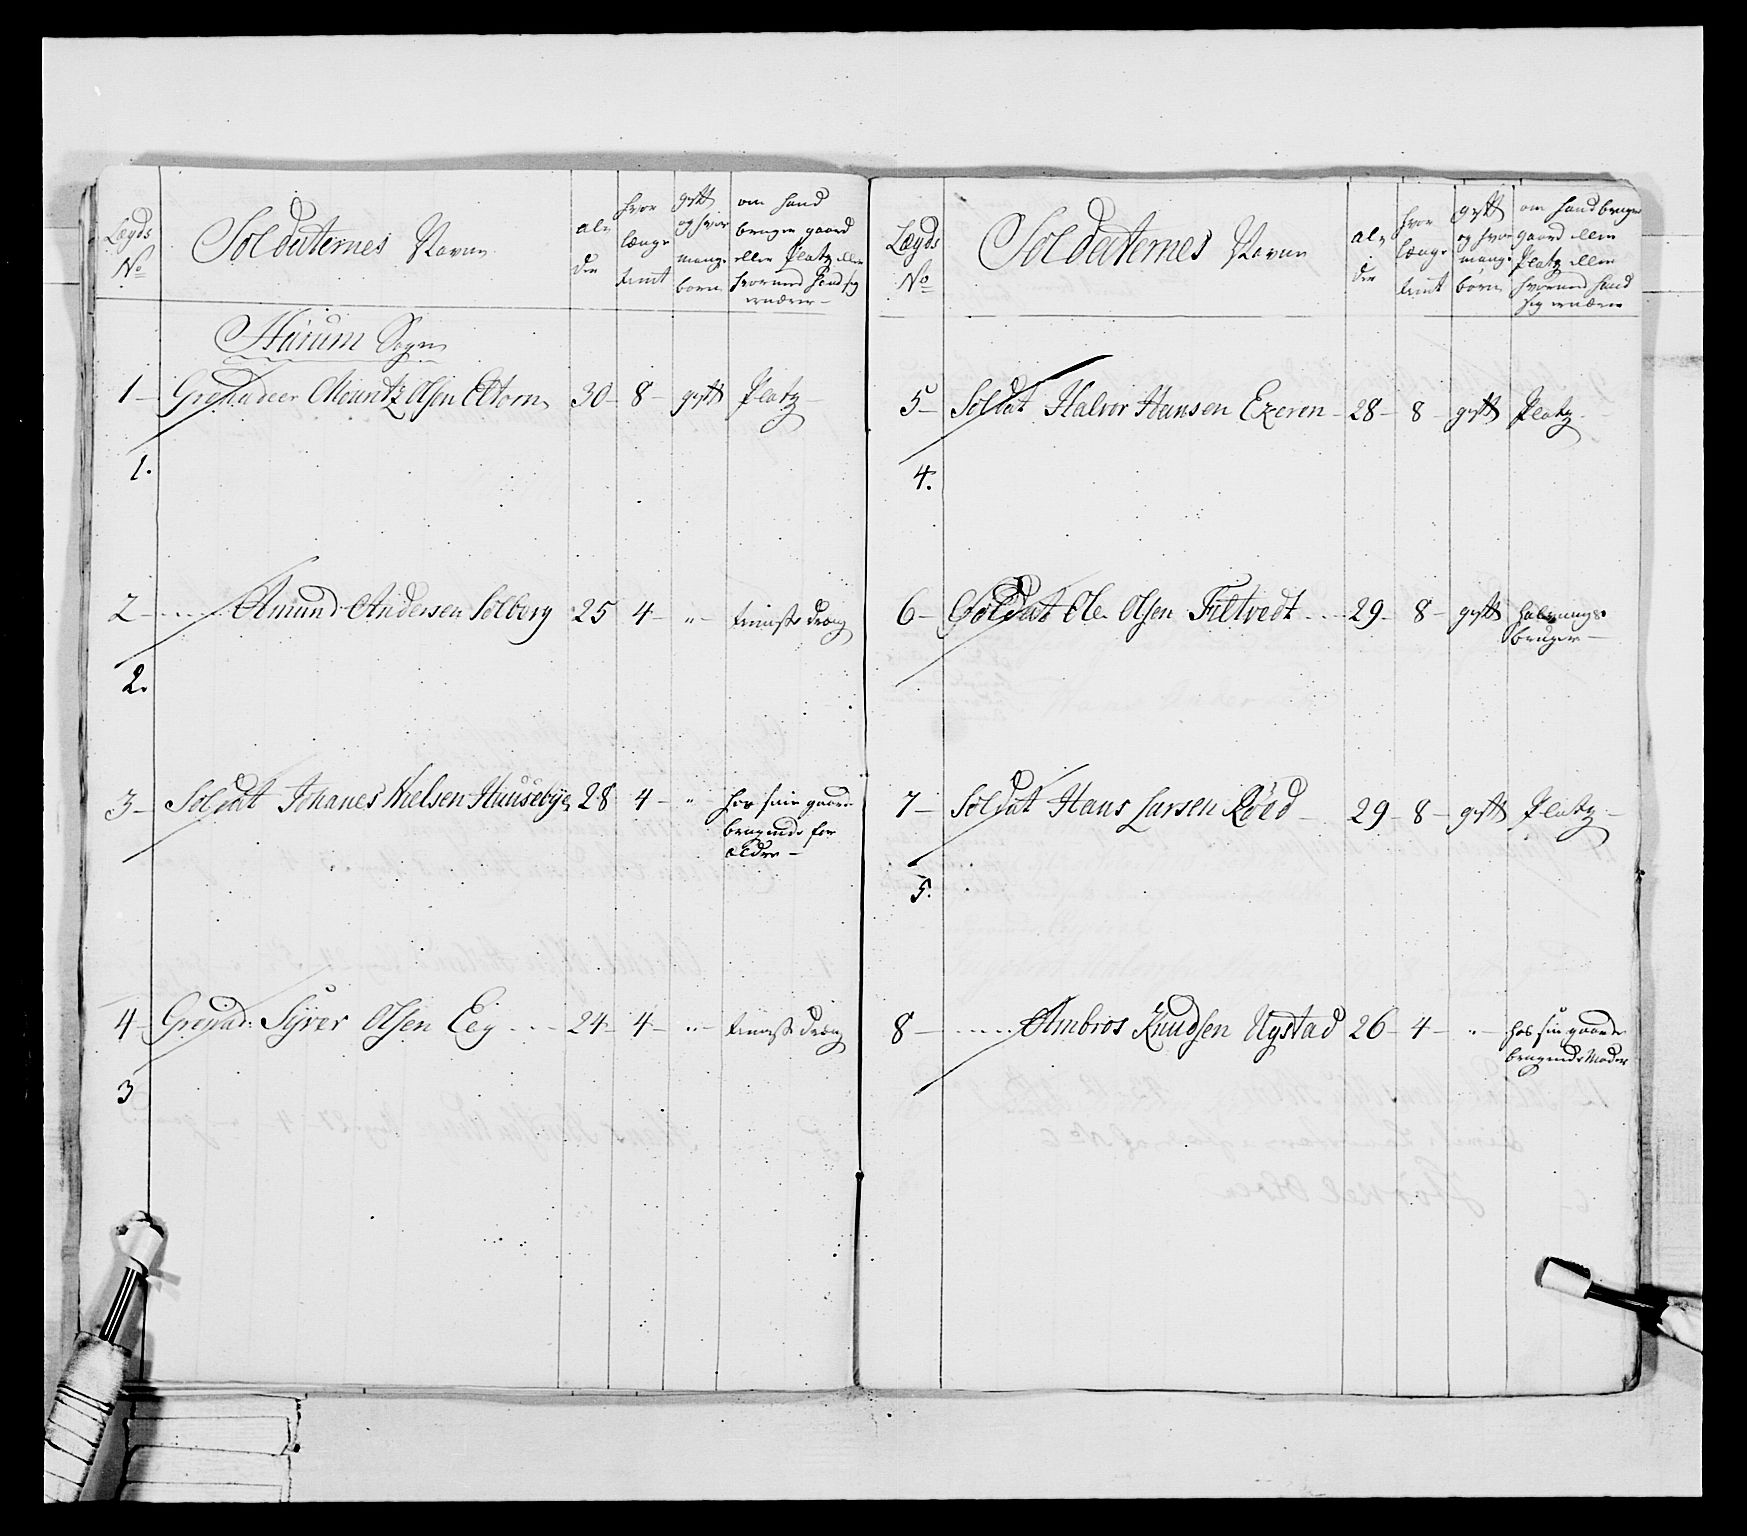 Lægds
No
Soldaternes Navne
al-
der
hvor
længe
tient
gift
og hvor
mange
børn
om hand
bruger gaard
eller Platz eller
hvormed hand sig
ernærer
Hurum Sogn
1 Grenadeer Mouritz Olsen Eltorn 30 8 gift Platz
1.
2 Amund Andersen Solberg 25 4 " tieniste dreng
2.
3 Soldat Johanes Nielsen Huusebye 28 4 " hos sine gaard
brugende for
ældre
4 Grenad: Syver Olsen Eeg 24 4 " tieniste dreng
3
Lægds
No
Soldaternes Navne
al-
der
hvor
længe
tient
gift
og hvor
mange
børn
om hand bruger
gaard eller
Platz eller
hvormed hand
sig ernærer
5 Soldat Halvor Hansen Exeren 28 8 gift Platz
4.
6 Soldat Ole Olsen Tiltvedt 29 8 gift
bruger
7 Soldat Hans Larsen Röed 29 8 gift Platz
5.
8 Ambros Knudsen Nygstad 26 4 " hos sin gaard
brugende Moder